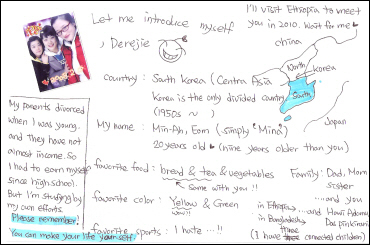 Let me introduce myself
, Derejie
I'll visit Ethiopia to meet
you in 2010. Wait for me
China
North
Korea
South
Japan
country : South Korea (Centra Asia
Korea is the only divided country
(1950s ~ )
My name : Min-Ah, Eom (simply "Mina")
20 years old (nine years older than you)
favorite food : bread & tea & vegetables
Some with you !!
favorite color : Yellow & Green
wow!!
favorite sports : I hate ---- !!
Family : Dad, Mom
sister
...and you
in Ethiopia
in Bangladesh
(I have three connected children)
My parents divorced
when I was young.
and they have not
almost income. So
I had to earn myself
since high school.
But I'm studying by
my own efforts.
Please remember!
You can make your life yourself.